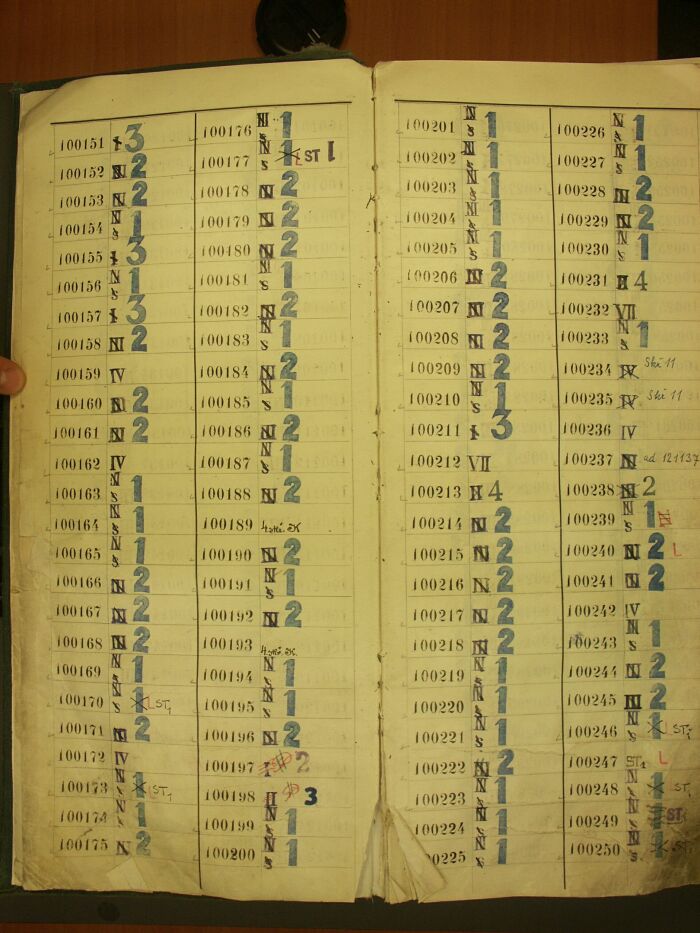 100151 I 3
100152 N 2
100153 N 2
100154 N s 1
100155 I 3
100156 N s 1
100157 I 3
100158 N 2
100159 IV
100160 N 2
100161 N 2
100162 IV
100163 N s 1
100164 N s 1
100165 N s 1
100166 N 2
100167 N 2
100168 N 2
100169 N s 1
100170 N s 1 L ST1
100171 N 2
100172 IV
100173 N s 1 L ST1
100174 N s 1
100175 N 2
100176 N s 1
100177 N s 1 L ST 1
100178 N 2
100179 N 2
100180 N 2
100181 N s 1
100182 N 2
100183 N s 1
100184 N 2
100185 N s 1
100186 N 2
100187 N s 1
100188 N 2
100189
100190 N 2
100191 N s 1
100192 N 2
100193
100194 N s 1
100195 N s 1
100196 N 2
100197 I 2
100198 II 3
100199 N s 1
100200 N s 1
100201 N s 1
100202 N s 1
100203 N s 1
100204 N s 1
100205 N s 1
100206 N 2
100207 N 2
100208 N 2
100209 N 2
100210 N s 1
100211 I 3
100212 VII
100213 II 4
100214 N 2
100215 N 2
100216 N 2
100217 N 2
100218 N 2
100219 N s 1
100220 N s 1
100221 N s 1
100222 N 2
100223 N s 1
100224 N s 1
100225 N s 1
100226 N s 1
100227 N s 1
100228 N 2
100229 N 2
100230 N s 1
100231 II 4
100232 VII
100233 N s 1
100234 IV Ski 11
100235 IV Ski 11
100236 IV
100237 N ad 121137
100238 N 2
100239 N s 1 N
100240 N 2 L
100241 N 2
100242 IV
100243 N s 1
100244 N 2
100245 N 2
100246 N s 1 L ST1
100247 ST1 L
100248 N s 1 ST1
100249 N s 1 ST
100250 N s 1 ST1